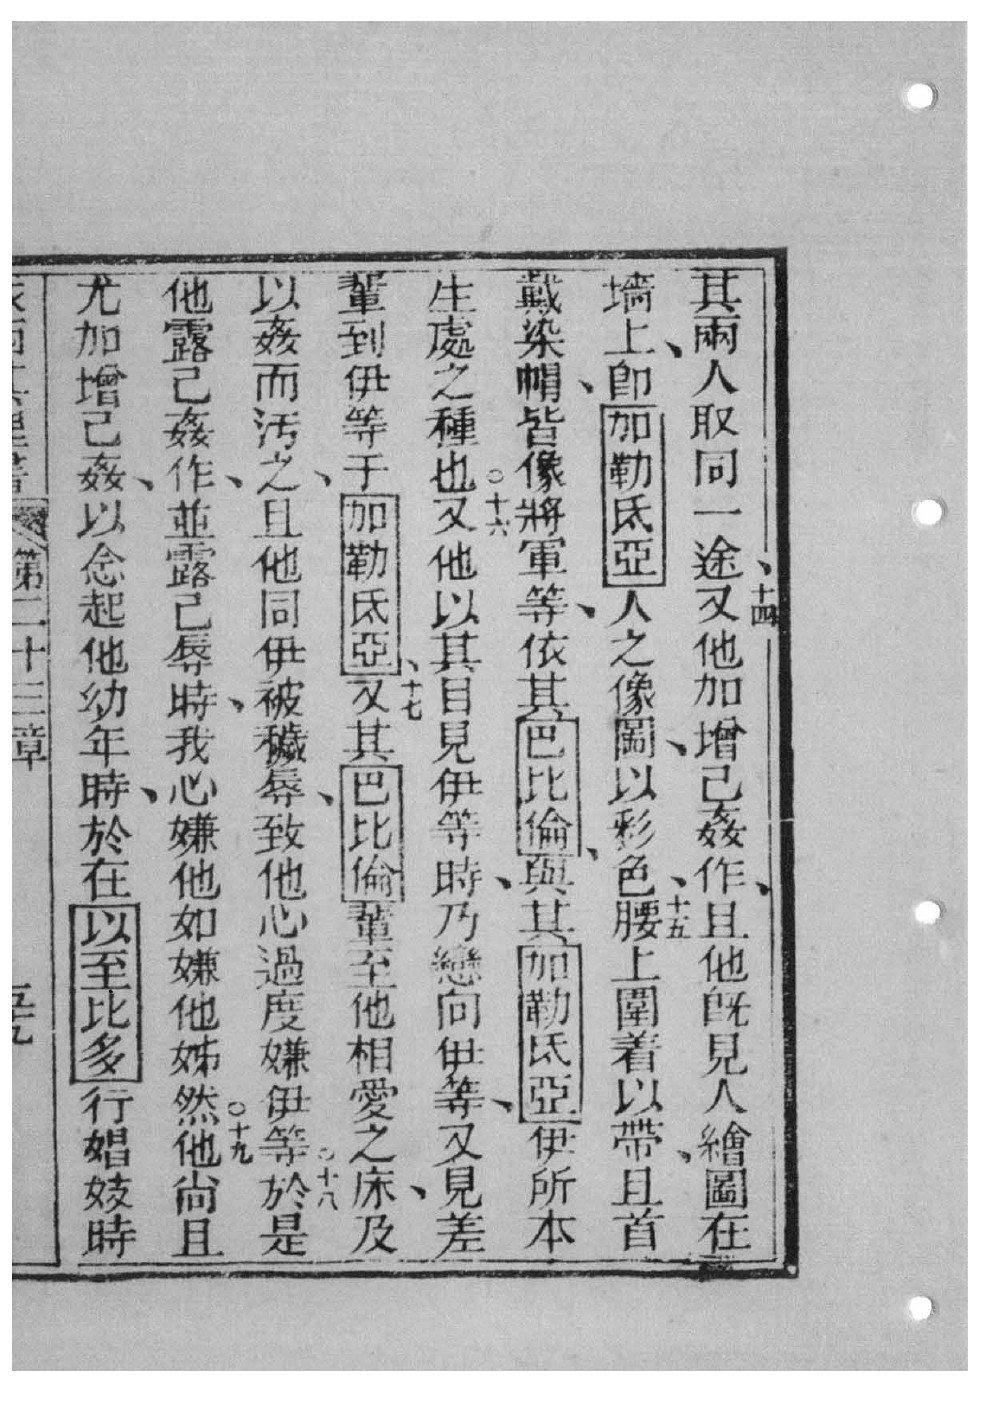 其兩人取同一途、十四又他加增己姦作、且他旣見人繪圖在
墻上、卽加勒氐亞人之像圖、以彩色、十五腰上圍着以帶、且首
戴染帽、皆像將軍等、依其巴比倫、與其加勒氐亞伊所本
生處之種也○十六又他以其目見伊等時、乃戀向伊等、又見差
輩到伊等于加勒氐亞、十七又其巴比倫輩至他相愛之床、及
以姦而汚之、且他同伊被穢辱、致他心過度嫌伊等○十八於是
他露己姦作、並露己辱時、我心嫌他如嫌他姊然○十九他尙且
尤加增己姦、以念起他幼年時、於在以至比多行娼妓時
第二十三章 五九